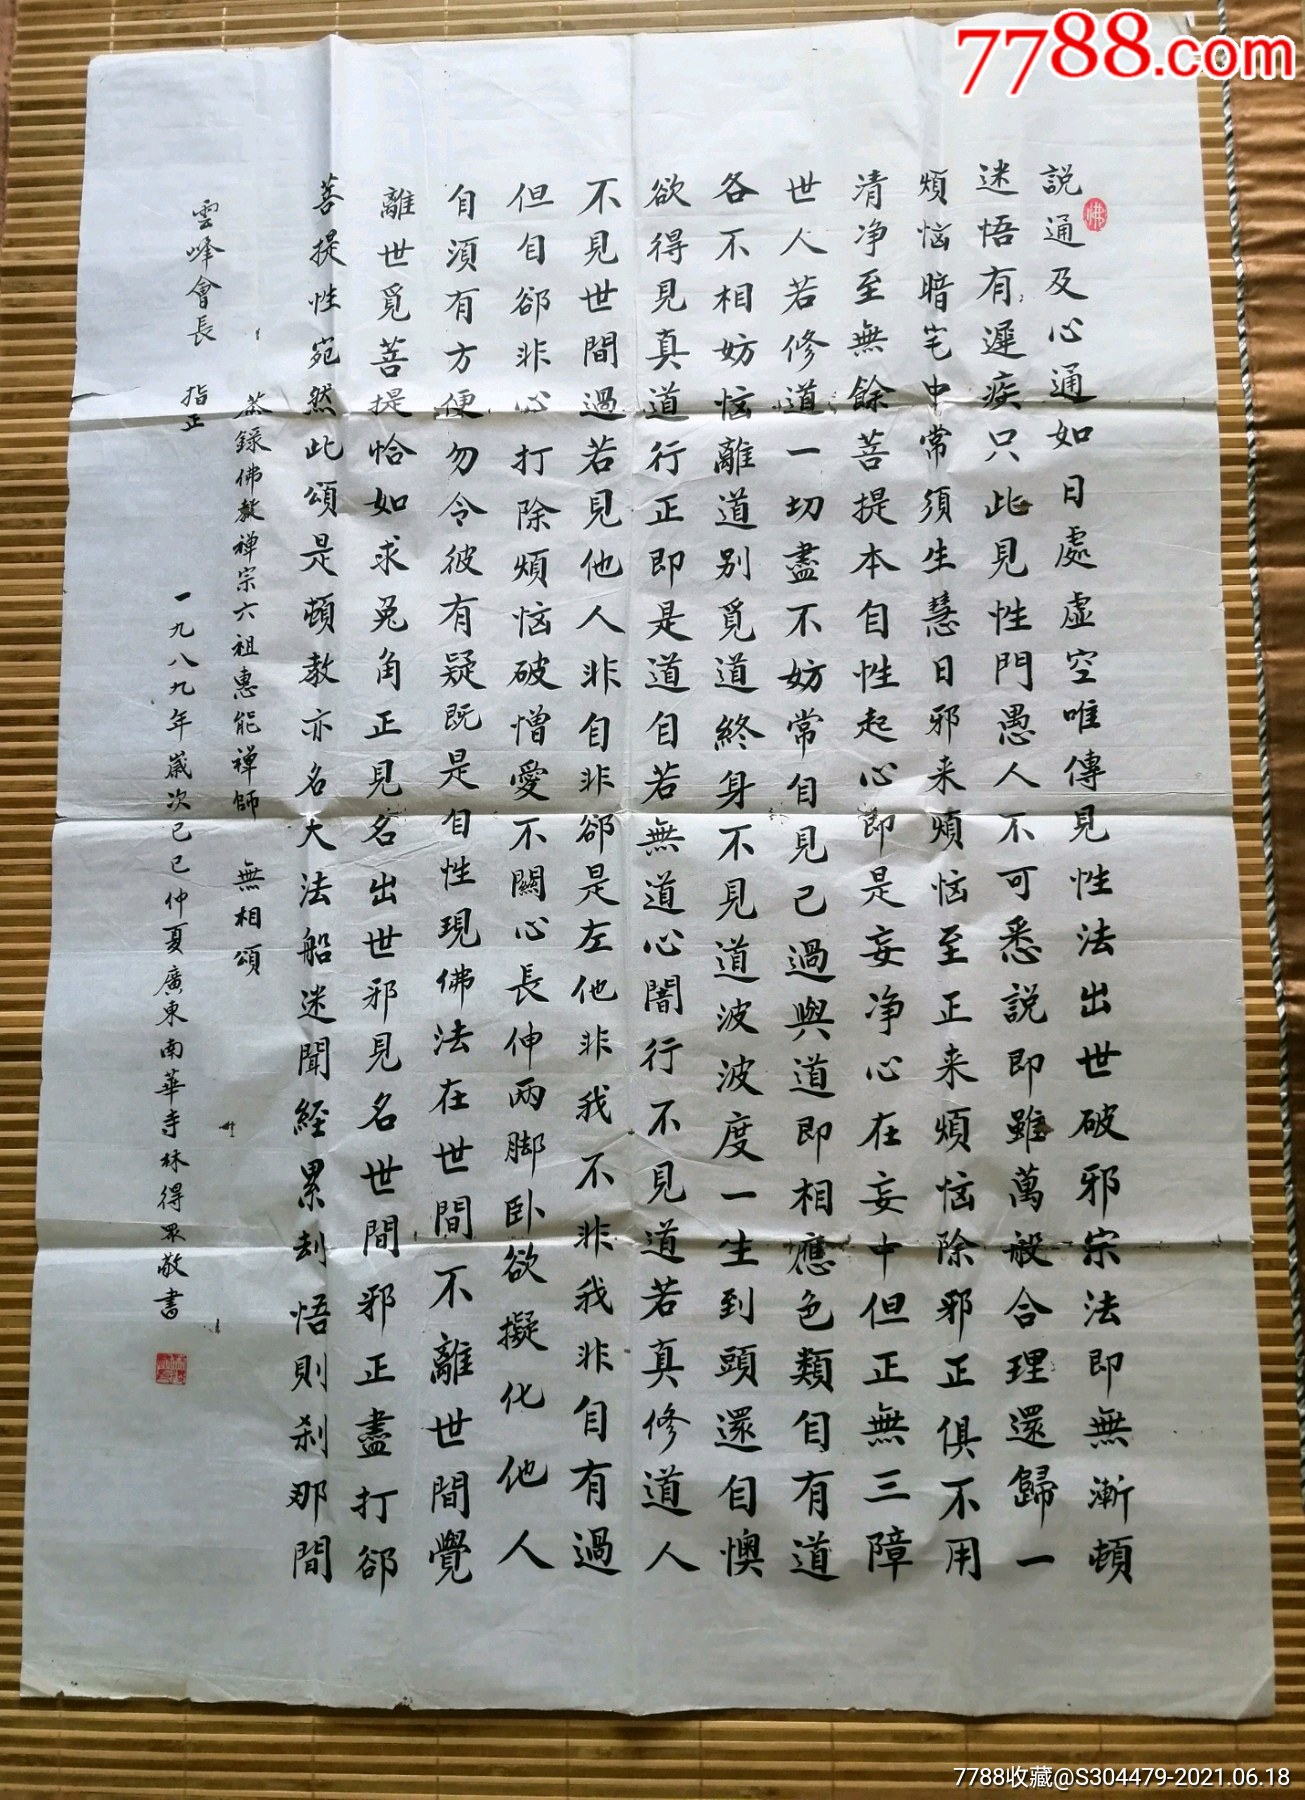 7788.com
佛
説通及心通如日處虛空唯傳見性法出世破邪宗法即無漸頓
迷悟有遲疾只此見性門愚人不可悉説即雖萬般合理還歸一
煩惱暗宅中常須生慧日邪来煩惱至正来煩惱除邪正俱不用
清净至無餘菩提本自性起心即是妄净心在妄中但正無三障
世人若修道一切盡不妨常自見己過與道即相應色類自有道
各不相妨惱離道别覓道終身不見道波波度一生到頭還自懊
欲得見真道行正即是道自若無道心闇行不見道若真修道人
不見世間過若見他人非自非郤是左他非我不非我非自有過
但自郤非心打除煩惱破憎愛不關心長伸兩脚卧欲擬化他人
自須有方便勿令彼有疑既是自性現佛法在世間不離世間覺
離世覓菩提恰如求兎角正見名出世邪見名世間邪正盡打郤
菩提性宛然此頌是頓教亦名大法船迷聞經累刼悟則刹那間
恭録佛教禅宗六祖惠能禅師 無相頌
雲峰會長 指正
一九八九年歲次己巳仲夏廣東南華寺林得眾敬書
7788收藏@S304479-2021.06.18